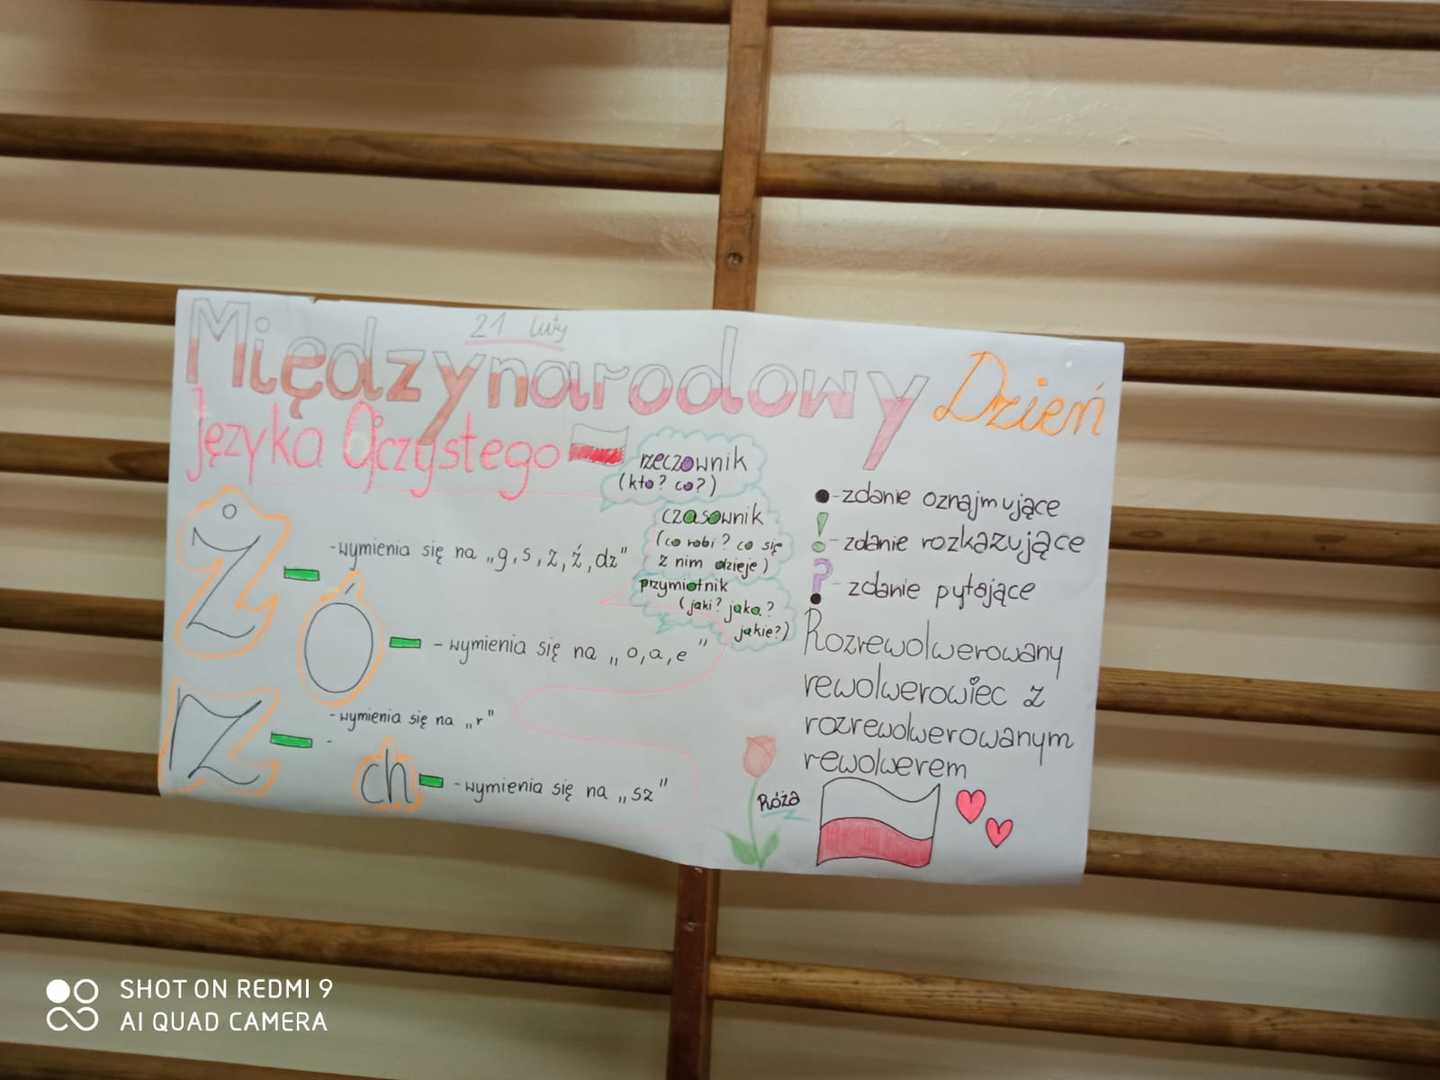 21 luty
Międzynarodowy Dzień
Języka Ojczystego
rzeczownik
(kto? co?)
czasownik
(co robi? co się
z nim dzieje)
przymiotnik
(jaki? jaka?
jakie?)
Ż
- wymienia się na „g, s, z, ź, dz"
Ó
- wymienia się na „o, a, e"
rz
- wymienia się na „r"
-
ch
- wymienia się na „sz"
. - zdanie oznajmujące
! - zdanie rozkazujące
? - zdanie pytające
Rozrewolwerowany
rewolwerowiec z
rozrewolwerowanym
rewolwerem
Róża
SHOT ON REDMI 9
AI QUAD CAMERA